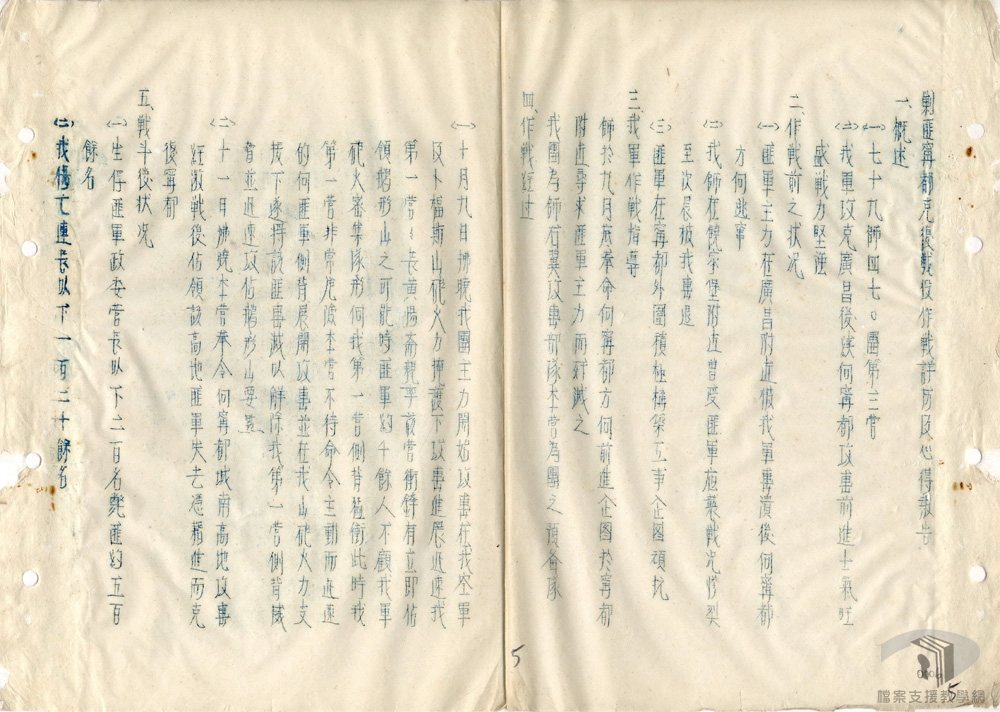 剿匪寧都克復戰役作戰詳歷及心得報告
一、概述
(一)七十九師四七〇團第三營
(二)我軍攻克廣昌後續向寧都攻擊前進士氣旺
盛戰力堅強
二、作戰前之狀況
(一)匪軍主力在廣昌附近被我軍擊潰後向寧都
方向逃竄
(二)我師在饒家堡附近曾受匪軍夜襲戰況慘烈
至次晨被我擊退
(三)匪軍在寧都外圍積極構築工事企圖頑抗
三、我軍作戰指導
師於九月底奉命向寧都方向前進企圖於寧都
附近尋求匪軍主力而奸滅之
我團為師右翼攻擊部隊本營為團之預備隊
四、作戰經過
(一)十月九日拂曉我團主力開始攻擊在我空軍
及卜福斯山砲火力掩護下攻擊進展迅速我
第一營營長黃揚齋親率前營衝鋒有立即佔
領鵝形山之可能時匪軍約千餘人不顧我軍
砲火密集隊形向我第一營側背猛衝此時我
第一營非常危險本營不待命令主動而迅速
的向匪軍側背展開攻擊並在我山砲火力支
援下遂將該匪擊滅以解除我第一營側背威
脅並迅速攻佔鵝形山要點
(二)十一日拂曉本營奉令向寧都城南高地攻擊
經激戰後佔領該高地匪軍失去憑藉進而克
復寧都
五、戰斗後狀况
(一)生俘匪軍政委營長以下二百名斃匪約五百
餘名
(二)我傷亡連長以下一百二十餘名
5
5
檔案支援教學網